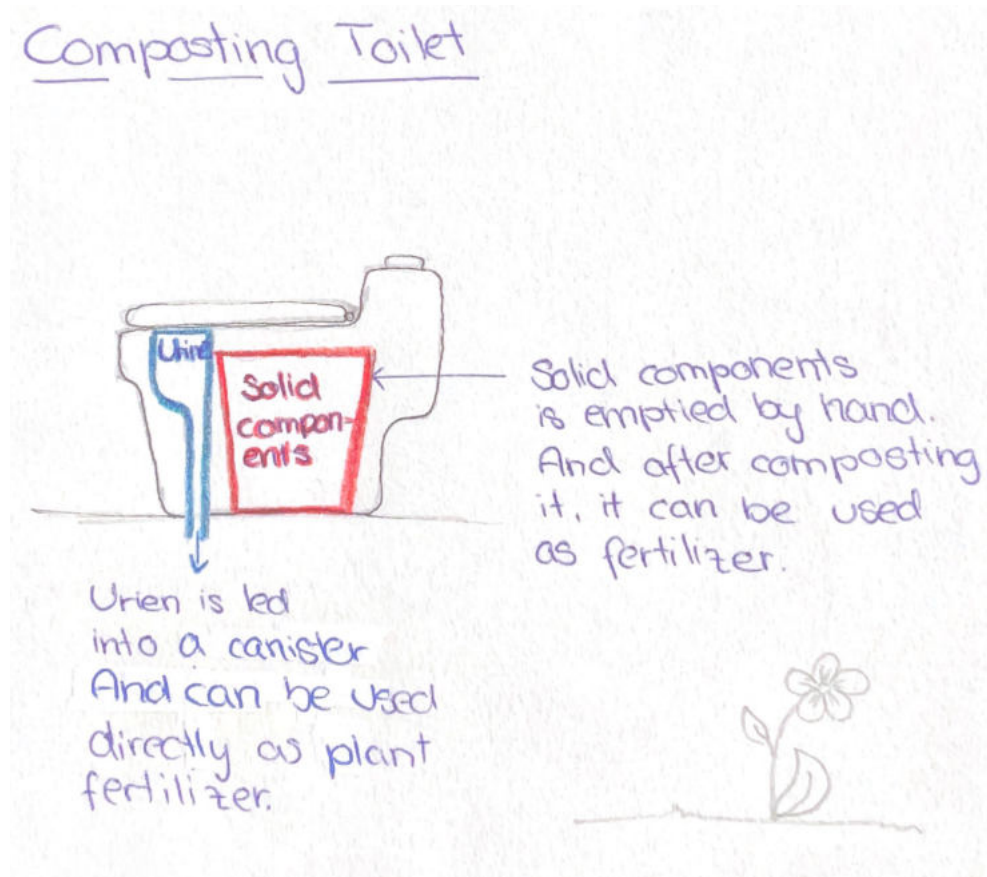 Composting Toilet
Urine
Solid
compon-
ents
Solid components
is emptied by hand.
And after composting
it, it can be used
as fertilizer.
Urien is led
into a canister
And can be used
directly as plant
fertilizer.